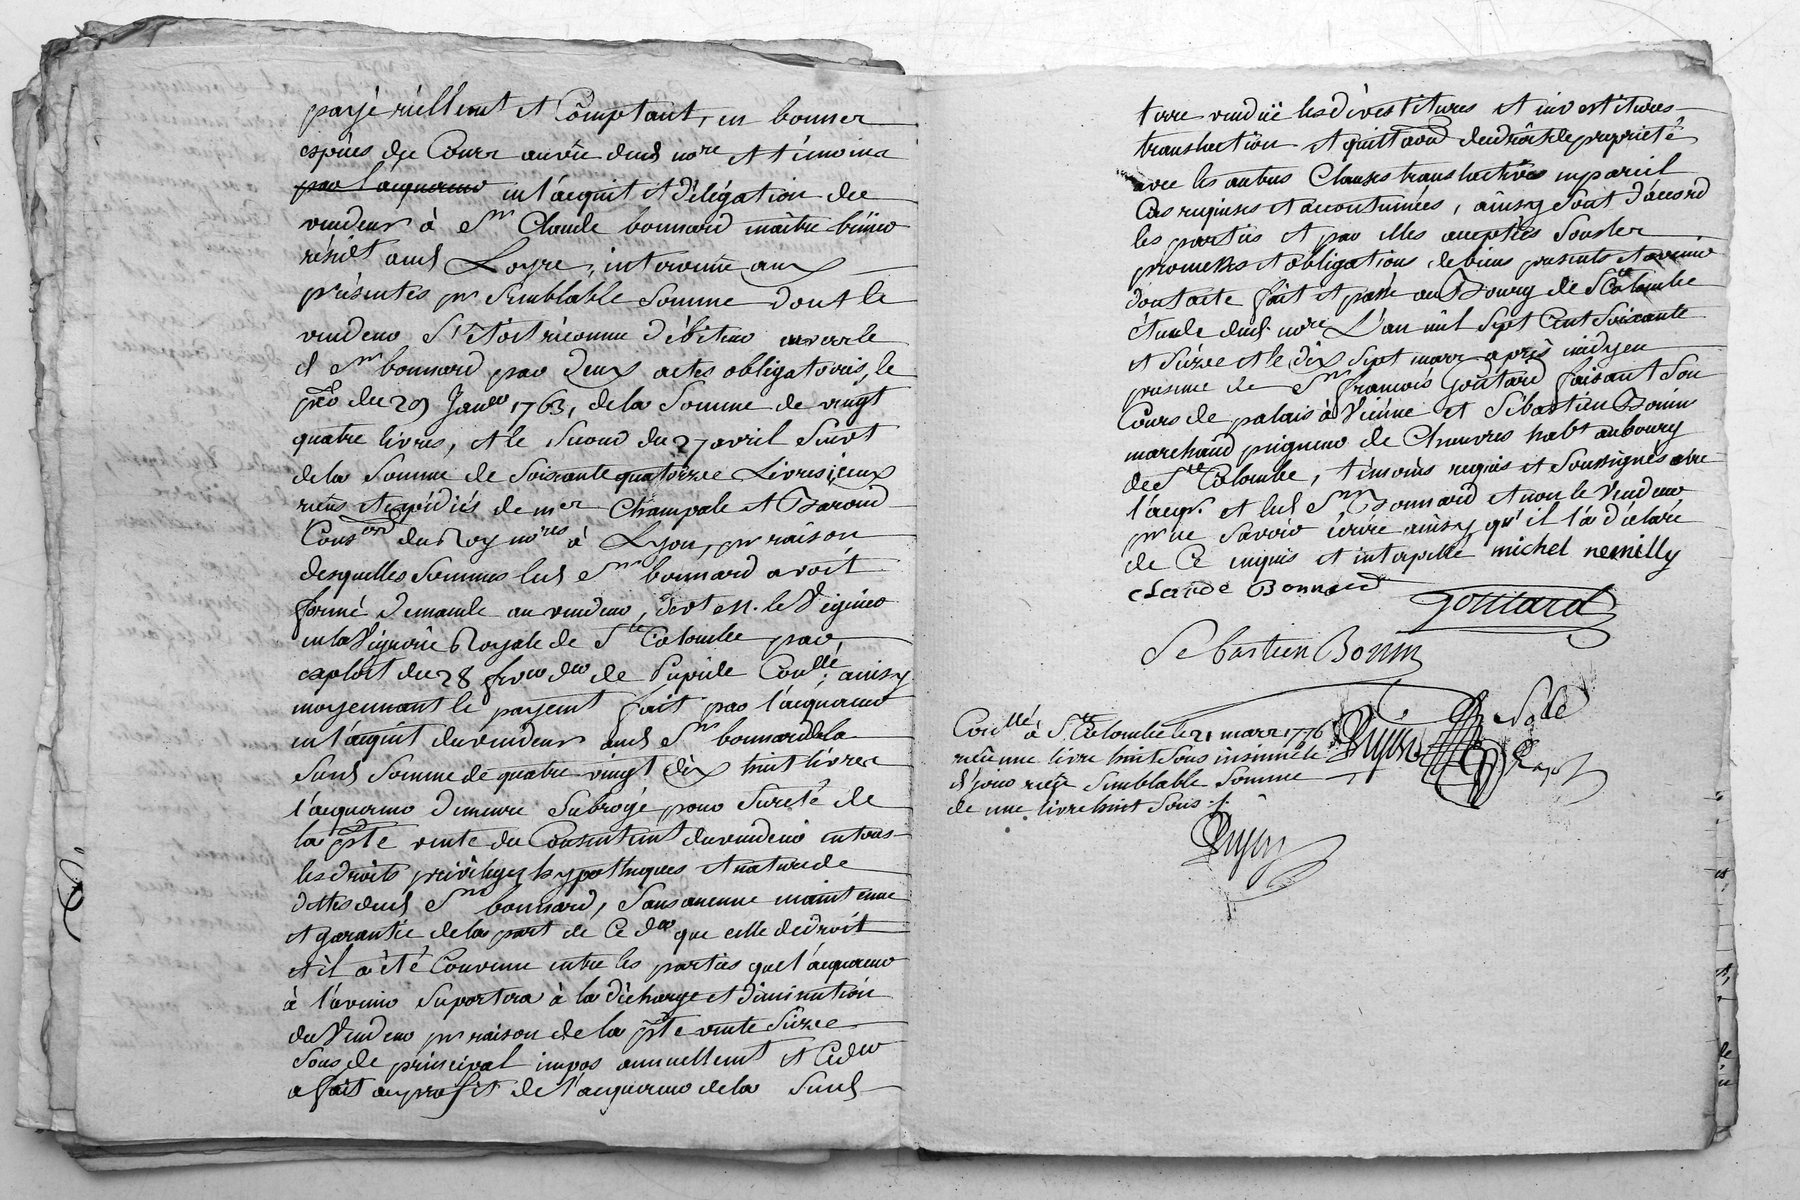 payé réellemt et Comptant, en bonnes
espèces de Cours au vûe dud. nore et témoins
par l'acquereur en l'acquit et délégation du
vendeur à Sr Claude bonnard maitre
résidt aud Loyre, intervenu aux
présentes pr semblable Somme dont le
vendeur S'etoit réconnu débiteur envers le
d Sr bonnard par deux actes obligatoires, le
per du 29 Janer 1763, de la Somme de vingt
quatre livres, et le Second du 27 avril Suivt
de la Somme de Soixante quatorze Livres, iceux
reçus et expédiés de mes Champale et Baroud
Conser du Roy nores à Lyon, pr raison
desquelles Sommes led Sr bonnard avoit
formé demande au vendeur, devt M. le Viguier
en la Viguerie Royale de Ste Colombe par
exploit du 28 fevrer der de Conllé, ainsy
moyennant le payemt fait par l'acquereur
en l'acquit du vendeur aud Sr bonnard de la
Susd Somme de quatre vingt dix huit livres
l'acquereur demeure Subrogé pour Sureté de
la pte vente du Consentemt du vendeur en tous
les droits privileges hypotheques et nature de
dettes dud Sr bonnard, Sans aucune maintenue
et garantie de la part de Ce der que celle de droit
et il a été Convenu entre les parties que l'acquereur
à l'avenir Suportera à la décharge et diminution
du Vendeur pr raison de la pte vente Seize
Sous de principal impos annuellemt et Ce der
a fait au profit de l'acquereur de la Susd
terre vendüe les dévestitures et investitures
translation et quittance du droit de proprieté
avec les autres Clauses translatives en pareil
Cas requises et accoutumées, ainsy Sont d'accord
les parties et par elles acceptées Sous les
promesses et obligations de biens presents et avenir
dont acte fait et passé au Bourg de Ste Colombe
étude dud. nore L'an mil Sept Cent Soixante
et Seize et le dix Sept mars après midy en
presence de Sr françois Goutard faisant Son
Cours de palais à Vienne et Sébastien Bonin
marchand peigneur de Chanvres habt au bourg
de Ste Colombe, témoins requis et Soussignés avec
l'acqr. et led Sr Bonnard et non le Vendeur
pr ne Savoir écrire ainsy qu'il l'a déclaré
de Ce enquis et interpellé michel nemilly
claude Bonnard
Goutard
Sebastien Bonin
Conllé à Ste Colombe le 21 mars 1776
reçu une livre huit Sous insinué le
d jour reçu Semblable Somme
de une livre huit Sous